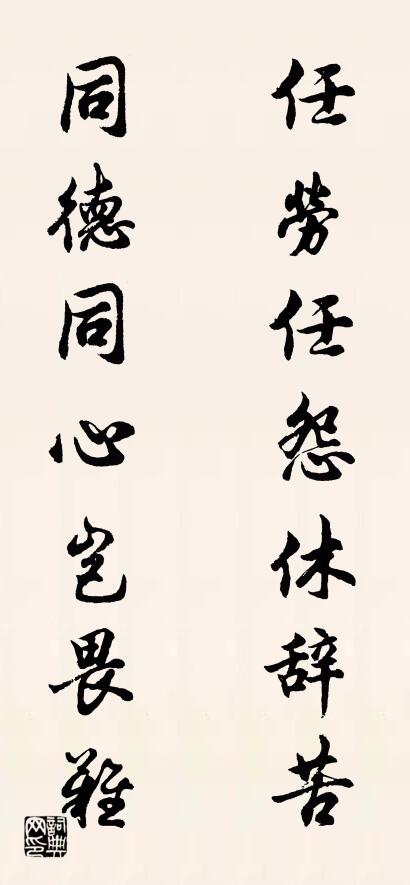 任勞任怨休辞苦
同德同心岂畏難
詞典网印